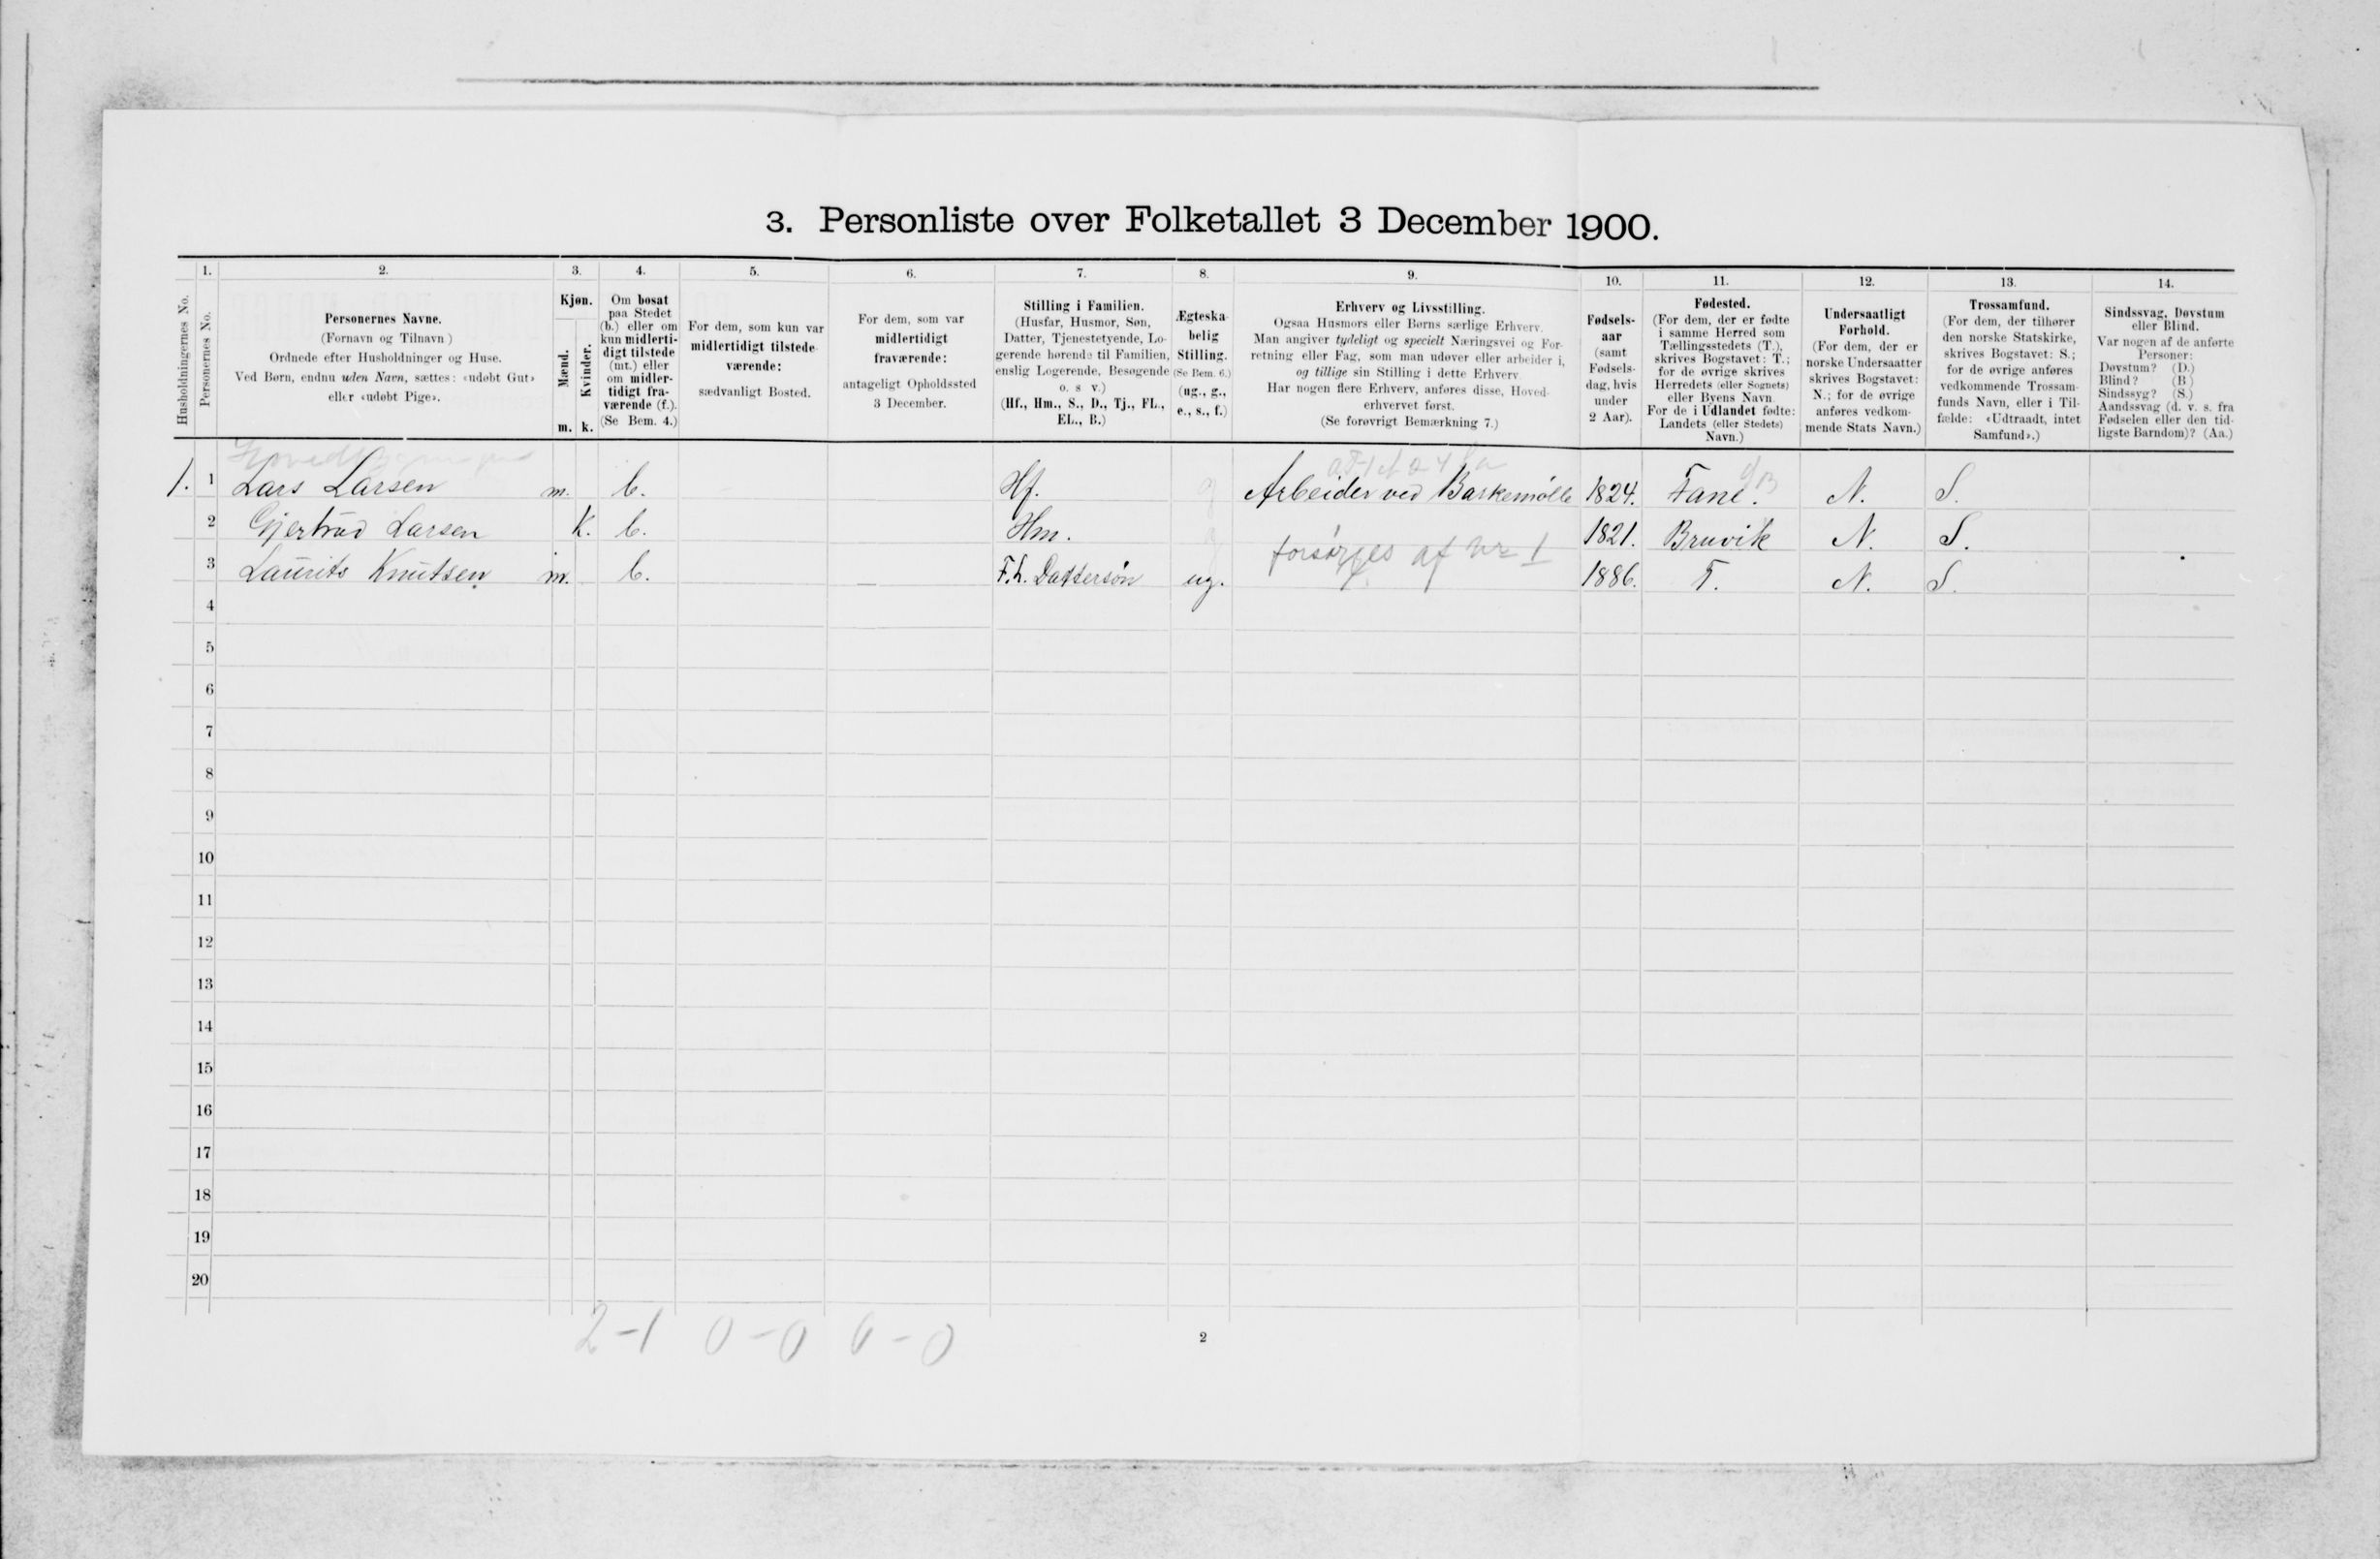 3. Personliste over Folketallet 3 December 1900.
1. 2. 3. 4. 5. 6. 7. 8. 9. 10. 11. 12. 13. 14.
Husholdningernes No.
Personernes No.
Personernes Navne.
(Fornavn og Tilnavn)
Ordnede efter Husholdninger og Huse.
Ved Børn, endnu uden Navn, sættes: «udøbt Gut»
eller «udøbt Pige».
Kjøn.
Mænd.
Kvinder.
m. k.
Om bosat
paa Stedet
(b.) eller om
kun midlerti-
digt tilstede
(mt.) eller
om midler-
tidigt fra-
værende (f.).
(Se Bem. 4.)
For dem, som kun var
midlertidigt tilstede-
værende:
sædvanligt Bosted.
For dem, som var
midlertidigt
fraværende:
antageligt Opholdssted
3 December.
Stilling i Familien.
(Husfar, Husmor, Søn,
Datter, Tjenestetyende, Lo-
gerende hørende til Familien,
enslig Logerende, Besøgende
o. s v.)
(Hf., Hm., S., D., Tj., FL.,
EL., B.)
Ægteska-
belig
Stilling.
(Se Bem. 6.)
(ug., g.,
e., s., f.)
Erhverv og Livsstilling.
Ogsaa Husmors eller Børns særlige Erhverv.
Man angiver tydeligt og specielt Næringsvei og For-
retning eller Fag, som man udøver eller arbeider i,
og tillige sin Stilling i dette Erhverv.
Har nogen flere Erhverv, anføres disse, Hoved-
erhvervet først.
(Se forøvrigt Bemærkning 7.)
Fødsels-
aar
(samt
Fødsels-
dag, hvis
under
2 Aar).
Fødested.
(For dem, der er fødte
i samme Herred som
Tællingsstedets (T.),
skrives Bogstavet: T.;
for de øvrige skrives
Herredets (eller Sognets)
eller Byens Navn.
For de i Udlandet fødte:
Landets (eller Stedets)
Navn.)
Undersaatligt
Forhold.
(For dem, der er
norske Undersaatter
skrives Bogstavet:
N.; for de øvrige
anføres vedkom-
mende Stats Navn.)
Trossamfund.
(For dem, der tilhører
den norske Statskirke,
skrives Bogstavet: S.;
for de øvrige anføres
vedkommende Trossam-
funds Navn, eller i Til-
fælde: «Udtraadt, intet
Samfund».)
Sindssvag, Døvstum
eller Blind.
Var nogen af de anførte
Personer:
Døvstum? (D.)
Blind? (B)
Sindssyg? (S.)
Aandssvag (d. v. s. fra
Fødselen eller den tid-
ligste Barndom)? (Aa.)
1. 1 Lars Larsen m. b. Hf. g Arbeider ved Barkemølle 1824. Fane. N. S.
2 Gjertrud Larsen K. b. Hm. g 1821. Bruvik N. S.
forsørges af nr 1
3 Laurits Knutsen m. b. F.L. Dattersøn ug. 1886. T. N. S.
4
5
6
7
8
9
10
11
12
13
14
15
16
17
18
19
20
2-1 0-0 0-0
2